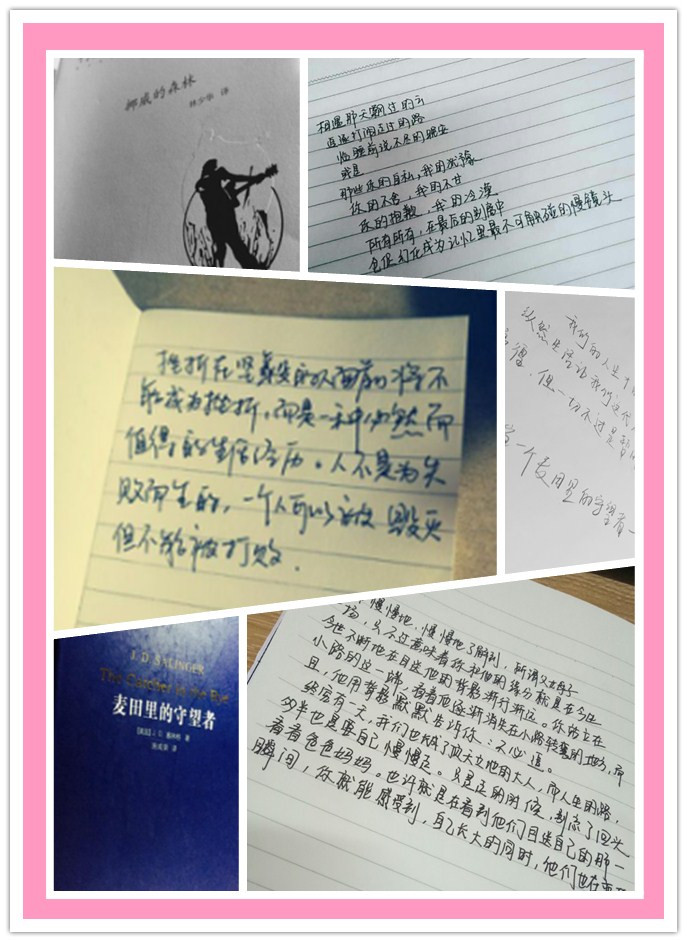 挪威的森林
林少华 译
相遇那天飘过的云
追逐打闹走过的路
临睡前说不尽的晚安
或是
那些你的自私,我的犹豫
你的不舍,我的不甘
你的抱歉,我的冷漠
所有所有,在最后的别离中
色俱幻化成为记忆里最不可触碰的慢镜头
挫折在坚毅的人面前将不
能成为挫折,而是一种必然而
值得的生活经历。人不是为失
败而生的,一个人可以被毁灭
但不能被打败.
我们的人生
纵然生活让我们
但一切不过是
一个麦田里的守望者
J. D. SALINGER
The Catcher in the Rye
麦田里的守望者
[美国] J. D. 塞林格 著
施咸荣 译
慢慢地,慢慢地了解到,所谓父母子
场,只不过意味着你和他的缘分就是在今生
今世不断地在目送他的背影渐行渐远。你站立在
小路的这一端,看着他逐渐消失在小路转弯的地方,而
且,他用背影默默告诉你:不必追。
终究有一天,我们也成了顶天立地的大人,而人生的路,
多半也是要自己慢慢走。只是走的时候,别忘了回头
看看爸爸妈妈。也许就是在看到他们目送自己的那一
瞬间,你就能感受到,自己长大的同时,他们也在